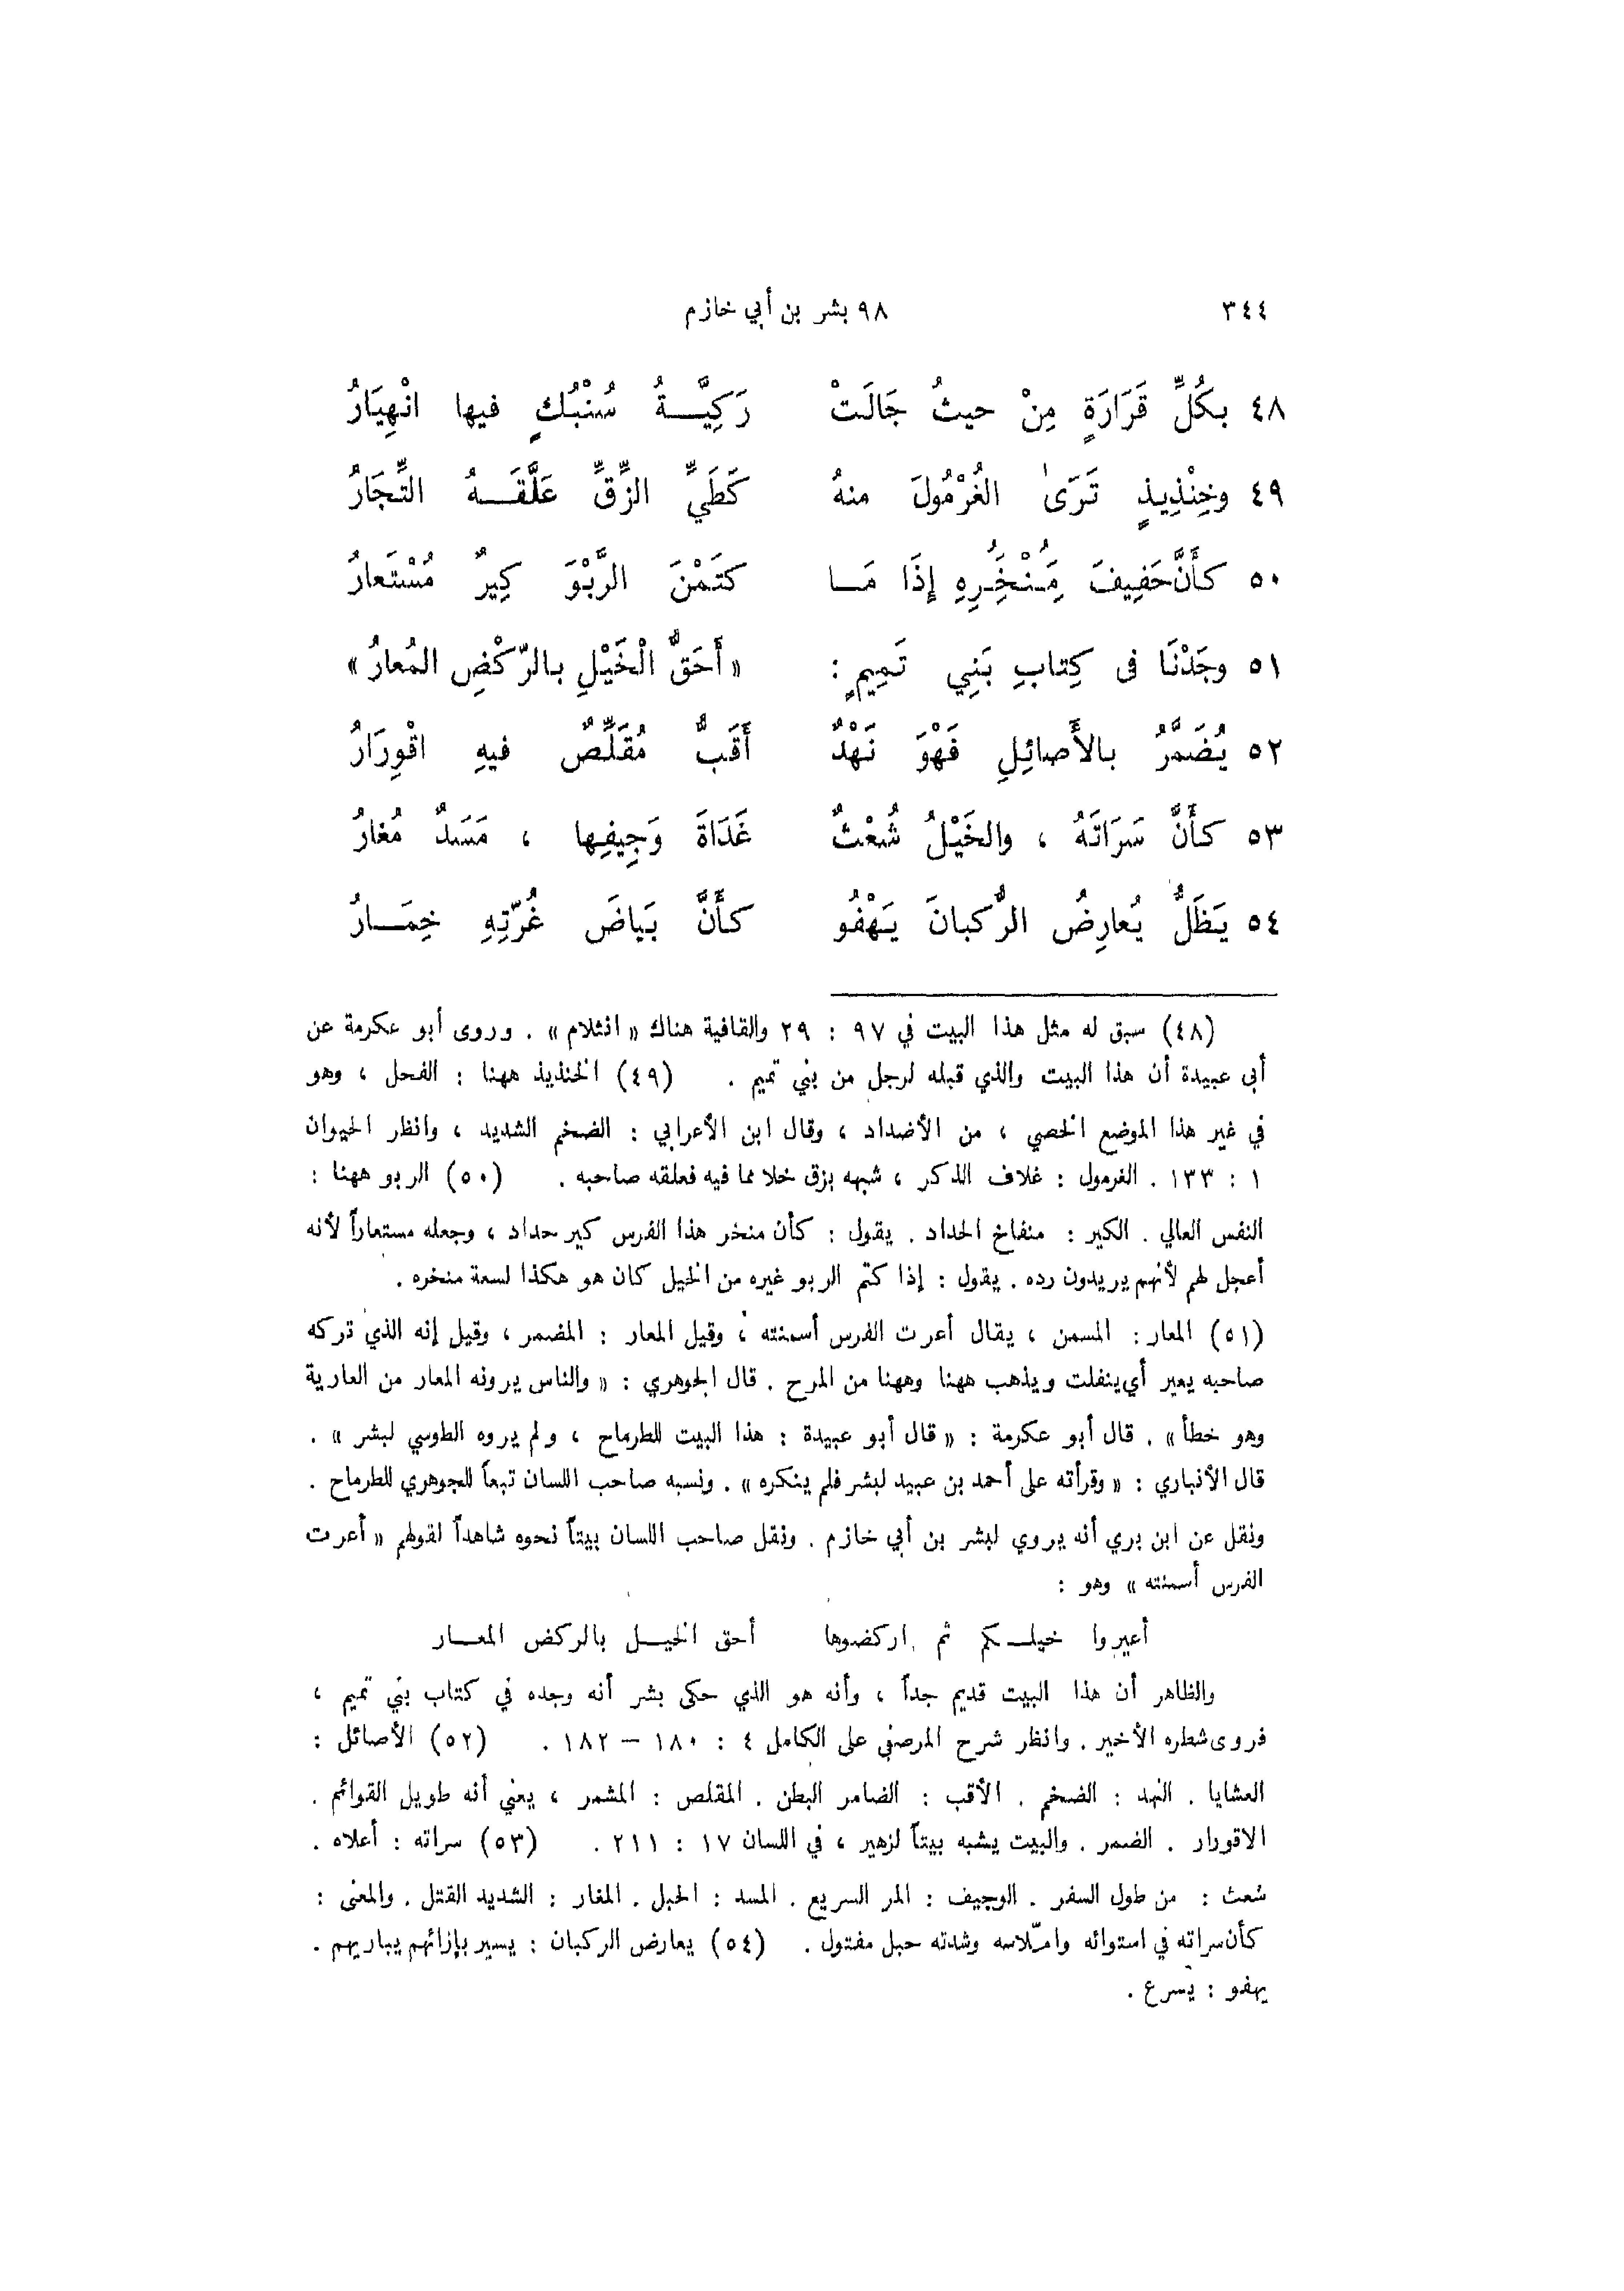 ٣٤٤ ٩٨ بشر بن أبي خازم
٤٨ بكُلِّ قَرَارَةٍ مِنْ حيثُ جَالَتْ رَكِيَّـــةُ سُنْبُكٍ فيها انْهِيَارُ
٤٩ وخِنْذِيذٍ تَرَىٰ الغُرْمُولَ منهُ كَطَيِّ الزِّقِّ عَلَّقَـــهُ التِّجَارُ
٥٠ كأَنَّ حَفِيفَ مَِنْخَُِرِهِ إِذَا مَـا كتَمْنَ الرَّبْوَ كِيرٌ مُسْتَعارُ
٥١ وجَدْنَا فى كِتابِ بَنِي تَمِيمٍ : « أَحَقُّ الْخَيْلِ بالرّكْضِ المُعارُ »
٥٢ يُضَمَّرُ بالأَصائِلِ فَهْوَ نَهْدٌ أَقَبُّ مُقَلِّصٌ فيهِ اقْوِرَارُ
٥٣ كأَنَّ سَرَاتَهُ ، والخَيْلُ شُعْثٌ غَدَاةَ وَجِيفِها ، مَسَدٌ مُغارُ
٥٤ يَظَلُّ يُعارِضُ الرُّكبانَ يَهْفُو كأَنَّ بَياضَ غُرّتِهِ خِمَـــارُ
(٤٨) سبق له مثل هذا البيت في ٩٧ : ٢٩ والقافية هناك « انثلام » . وروى أبو عكرمة عن
أبى عبيدة أن هذا البيت والذي قبله لرجل من بني تميم . (٤٩) الخنذيذ ههنا : الفحل ، وهو
في غير هذا الموضع الخصي ، من الأضداد ، وقال ابن الأعرابي : الضخم الشديد ، وانظر الحيوان
١ : ١٣٣ . الغرمول : غلاف الذكر ، شبهه بزق خلا مما فيه فعلقه صاحبه . (٥٠) الربو ههنا :
النفس العالي . الكير : منفاخ الحداد . يقول : كأن منخر هذا الفرس كير حداد ، وجعله مستعاراً لأنه
أعجل لهم لأنهم يريدون رده . يقول : إذا كتم الربو غيره من الخيل كان هو هكذا لسعة منخره .
(٥١) المعار : المسمن ، يقال أعرت الفرس أسمنته ، وقيل المعار : المضمر ، وقيل إنه الذي تركه
صاحبه يعير أي ينفلت ويذهب ههنا وههنا من المرح . قال الجوهري : « والناس يرونه المعار من العارية
وهو خطأ » . قال أبو عكرمة : « قال أبو عبيدة : هذا البيت للطرماح ، ولم يروه الطوسي لبشر » .
قال الأنباري : « وقرأته على أحمد بن عبيد لبشر فلم ينكره » . ونسبه صاحب اللسان تبعاً للجوهري للطرماح .
ونقل عن ابن بري أنه يروي لبشر بن أبي خازم . ونقل صاحب اللسان بيتاً نحوه شاهداً لقولهم « أعرت
الفرس أسمنته » وهو :
أعيروا خيلـــكم ثم اركضوها أحق الخيـــل بالركض المعـــار
والظاهر أن هذا البيت قديم جداً ، وأنه هو الذي حكى بشر أنه وجده في كتاب بني تميم ،
فروى شطره الأخير . وانظر شرح المرصفي على الكامل ٤ : ١٨٠ – ١٨٢ . (٥٢) الأصائل :
العشايا . النهد : الضخم . الأقب : الضامر البطن . المقلص : المشمر ، يعني أنه طويل القوائم .
الاقورار . الضمر . والبيت يشبه بيتاً لزهير ، في اللسان ١٧ : ٢١١ . (٥٣) سراته : أعلاه .
شعث : من طول السفر . الوجيف : المر السريع . المسد : الحبل . المغار : الشديد الفتل . والمعنى :
كأن سراته في استوائه وامّلاسه وشدته حبل مفتول . (٥٤) يعارض الركبان : يسير بإزائهم يباريهم .
يهفو : يسرع .